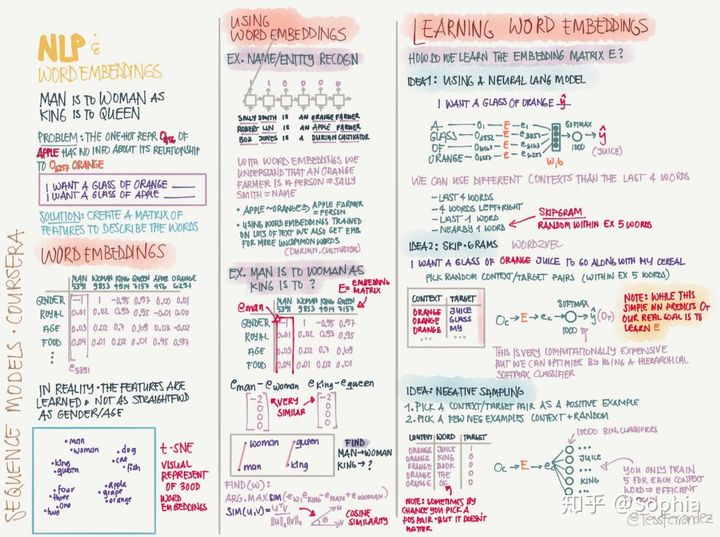 SEQUENCE MODELS · COURSERA
NLP &
WORD EMBEDDINGS
MAN IS TO WOMAN AS
KING IS TO QUEEN
PROBLEM: THE ONE-HOT REPR
APPLE HAS NO INFO ABOUT ITS RELATIONSHIP
TO O6257 ORANGE
I WANT A GLASS OF ORANGE ____
I WANT A GLASS OF APPLE ____
SOLUTION: CREATE A MATRIX OF
FEATURES TO DESCRIBE THE WORDS
WORD EMBEDDINGS
MAN WOMAN KING QUEEN APPLE ORANGE
5391 9853 4914 7157 456 6257
GENDER -1 1 -0.95 0.97 0.00 0.01
ROYAL 0.01 0.02 0.93 0.95 -0.01 0.00
AGE 0.03 0.02 0.7 0.69 0.03 -0.02
FOOD 0.04 0.01 0.02 0.01 0.95 0.97
e5391
IN REALITY · THE FEATURES ARE
LEARNED & NOT AS STRAIGHTFWD
AS GENDER/AGE
man
woman
dog
cat
fish
king
queen
four
three
one
two
apple
grape
orange
t-SNE
VISUAL
REPRESENT
OF 300D
WORD
EMBEDDINGS
USING
WORD EMBEDDINGS
EX. NAME/ENTITY RECOGN
1 1 0 0 0 0
SALLY SMITH IS AN ORANGE FARMER
ROBERT LIN IS AN APPLE FARMER
BOB JONES IS A DURIAN CULTIVATOR
WITH WORD EMBEDDINGS WE
UNDERSTAND THAT AN ORANGE
FARMER IS A PERSON ⇒ SALLY
SMITH = NAME
• APPLE ~ ORANGE ⇒ APPLE FARMER
= PERSON
• USING WORD EMBEDDINGS TRAINED
ON LOTS OF TEXT WE ALSO GET EMB
FOR MORE UNCOMMON WORDS
(DURIAN, CULTIVATOR)
EX. MAN IS TO WOMAN AS
KING IS TO ?
E = EMBEDDING
MATRIX
eman
MAN WOMAN KING QUEEN
5391 9853 4914 7157
GENDER -1 1 -0.95 0.97
ROYAL 0.01 0.02 0.93 0.95
AGE 0.03 0.02 0.7 0.69
FOOD 0.04 0.01 0.02 0.01
eman - ewoman eking - equeen
-2 0 0 0
VERY
SIMILAR
-2 0 0 0
woman
man
queen
king
FIND
MAN→WOMAN
KING → ?
FIND(W):
ARG.MAX SIM(ew, eking - eman + ewoman)
SIM(u,v) = uTv / ||u||2 ||v||2
COSINE
SIMILARITY
LEARNING WORD EMBEDDINGS
HOW DO WE LEARN THE EMBEDDING MATRIX E?
IDEA1: USING A NEURAL LANG MODEL
I WANT A GLASS OF ORANGE ŷ
A
GLASS
OF
ORANGE
E
SOFTMAX
1000
ŷ
(JUICE)
W,b
WE CAN USE DIFFERENT CONTEXTS THAN THE LAST 4 WORDS
- LAST 4 WORDS
- 4 WORDS LEFT+RIGHT
- LAST 1 WORD
- NEARBY 1 WORD
SKIPGRAM
RANDOM WITHIN EX 5 WORDS
IDEA2: SKIP-GRAMS WORD2VEC
I WANT A GLASS OF ORANGE JUICE TO GO ALONG WITH MY CEREAL
PICK RANDOM CONTEXT/TARGET PAIRS (WITHIN EX 5 WORDS)
CONTEXT TARGET
ORANGE JUICE
ORANGE GLASS
ORANGE MY
Oc → E → ec
SOFTMAX
1000
ŷ (OT)
NOTE: WHILE THIS
IS SIMPLE NN PREDICTS OT
OUR REAL GOAL IS TO
LEARN E
THIS IS VERY COMPUTATIONALLY EXPENSIVE
BUT WE CAN OPTIMIZE BY USING A HIERARCHICAL
SOFTMAX CLASSIFIER
IDEA: NEGATIVE SAMPLING
1. PICK A CONTEXT/TARGET PAIR AS A POSITIVE EXAMPLE
2. PICK A FEW NEG EXAMPLES CONTEXT + RANDOM
CONTEXT WORD TARGET
ORANGE JUICE 1
ORANGE KING 0
ORANGE BOOK 0
ORANGE THE 0
ORANGE OF 0
NOTE: SOMETIMES BY
CHANCE YOU PICK A
POS PAIR · BUT IT DOESN'T
MATTER
Oc → E → ec
10000 BIN. CLASSIFIERS
JUICE
KING
YOU ONLY TRAIN
5 FOR EACH CONTEXT
WORD ⇒ EFFICIENT
知乎 @Sophia
@TessFerrandez